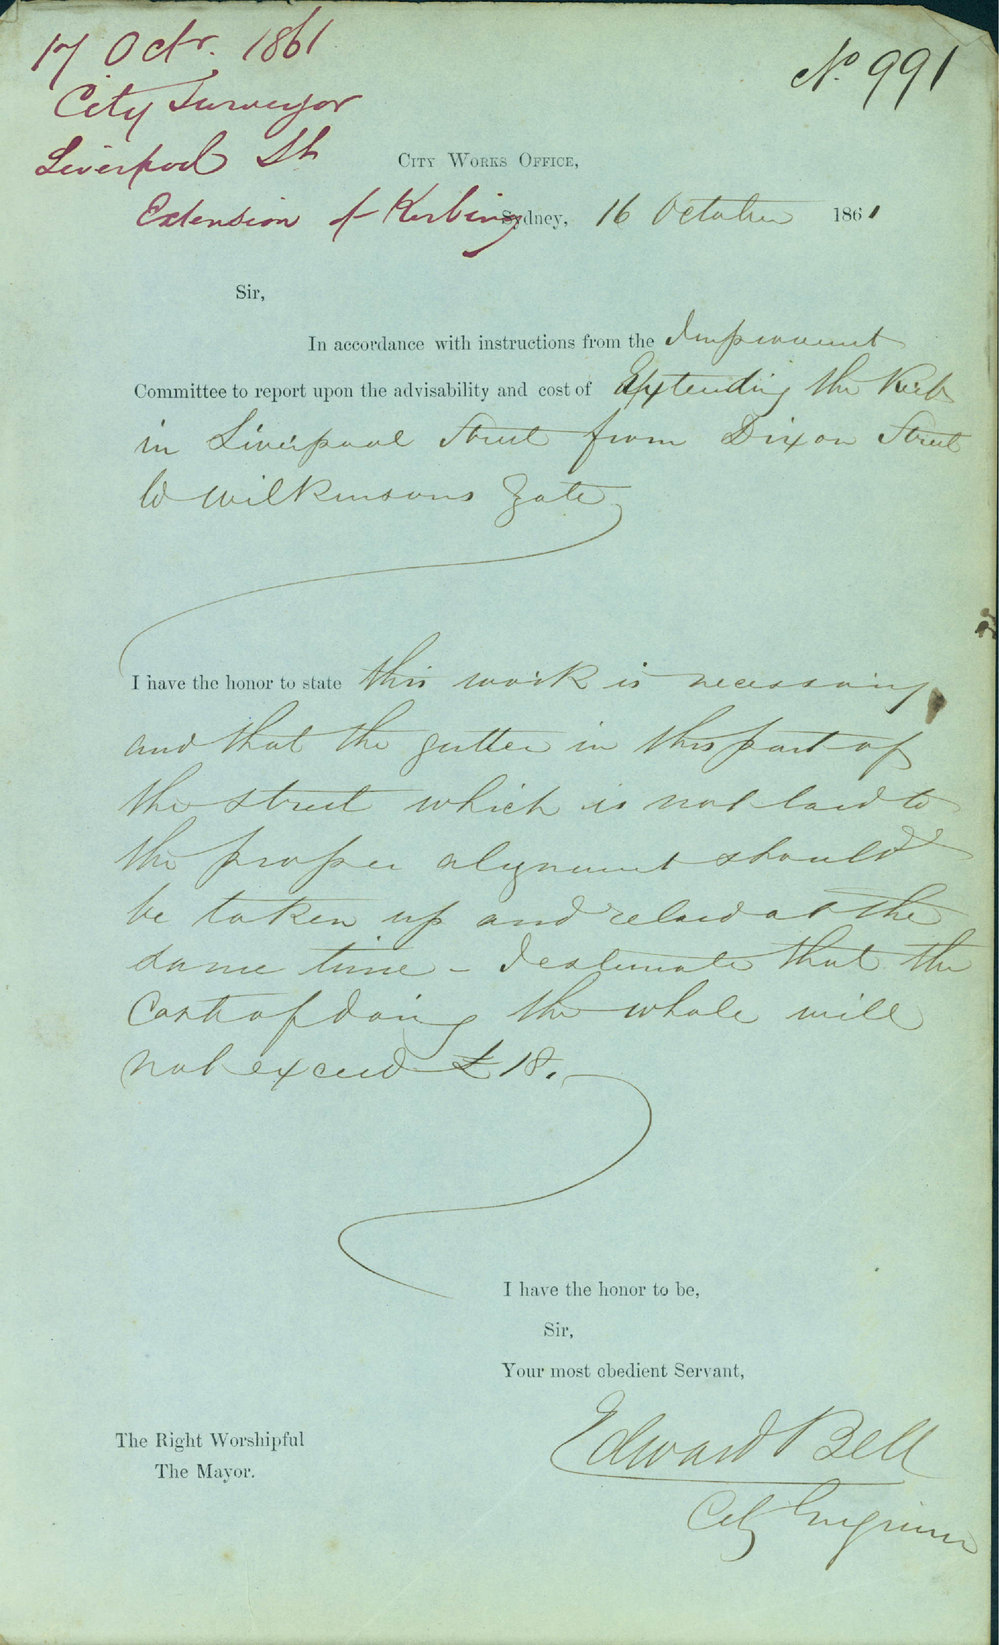 17 Octr. 1861
City Surveyor
Liverpool St
Extension of Kerbing
No 991
City Works Office,
Sydney, 16 October 1861
Sir,
In accordance with instructions from the Improvement
Committee to report upon the advisability and cost of Extending the Kerb
in Liverpool Street from Dixon Street
to Wilkinsons Gate
I have the honor to state this work is necessary
and that the gutter in this part of
the street which is not laid to
the proper alignment should
be taken up and relaid at the
same time – I estimate that the
Cost of doing the whole will
not exceed £18.
I have the honor to be,
Sir,
Your most obedient Servant,
Edward Bell
City Engineer
The Right Worshipful
The Mayor.